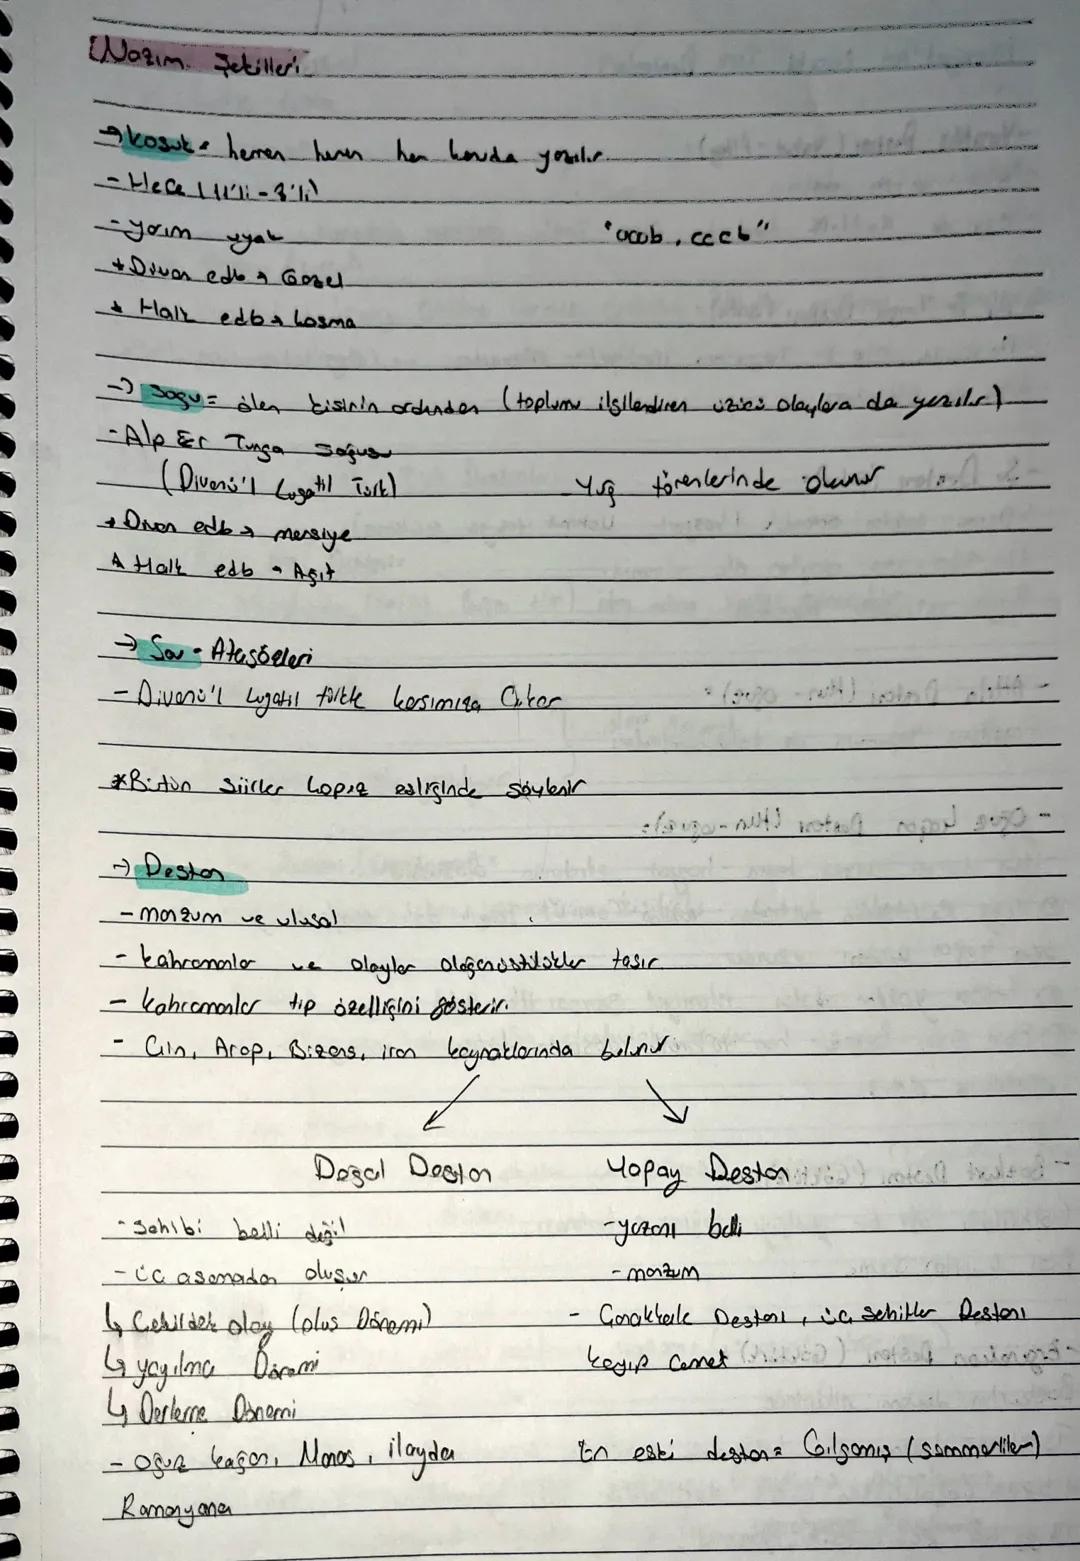 Nazım Şekilleri
→ Koşuk = hemen hemen her konuda yazılır.
- Hece (11'li - 8'li)
- yarım uyak "aaab, cccb"
+ Divan edb → Gazel
+ Halk edb → koşma
→ Sagu = ölen kişinin ardından (toplumu ilgilendiren üzücü olaylara da yazılır)
- Alp Er Tunga Sagusu
(Divanü'l Lugatil Türk) - Yuğ törenlerinde okunur
+ Divan edb → mersiye
+ Halk edb → Ağıt
→ Sav = Atasözleri
- Divanü'l Lugatil türkte karşımıza Çıkar
* Bütün Şiirler kopuz eşliğinde söylenir
→ Destan
- manzum ve ulusal
- kahramanlar ve olaylar olağanüstülükler taşır
- kahramanlar tip özelliğini gösterir.
- Çin, Arap, Bizans, iran kaynaklarında bulunur.
Doğal Destan Yapay Destan
- Sahibi belli değil - yazanı belli
- üç aşamadan oluşur - manzum
↳ Çekirdek olay (oluş Dönemi) - Çanakkale Destanı, üç şehitler Destanı
↳ yayılma Dönemi kayıp Cennet
↳ Derleme Dönemi
- oğuz kağan, Manas, ilayda En eski destan = Gılgamış (sümmerliler)
Ramayana